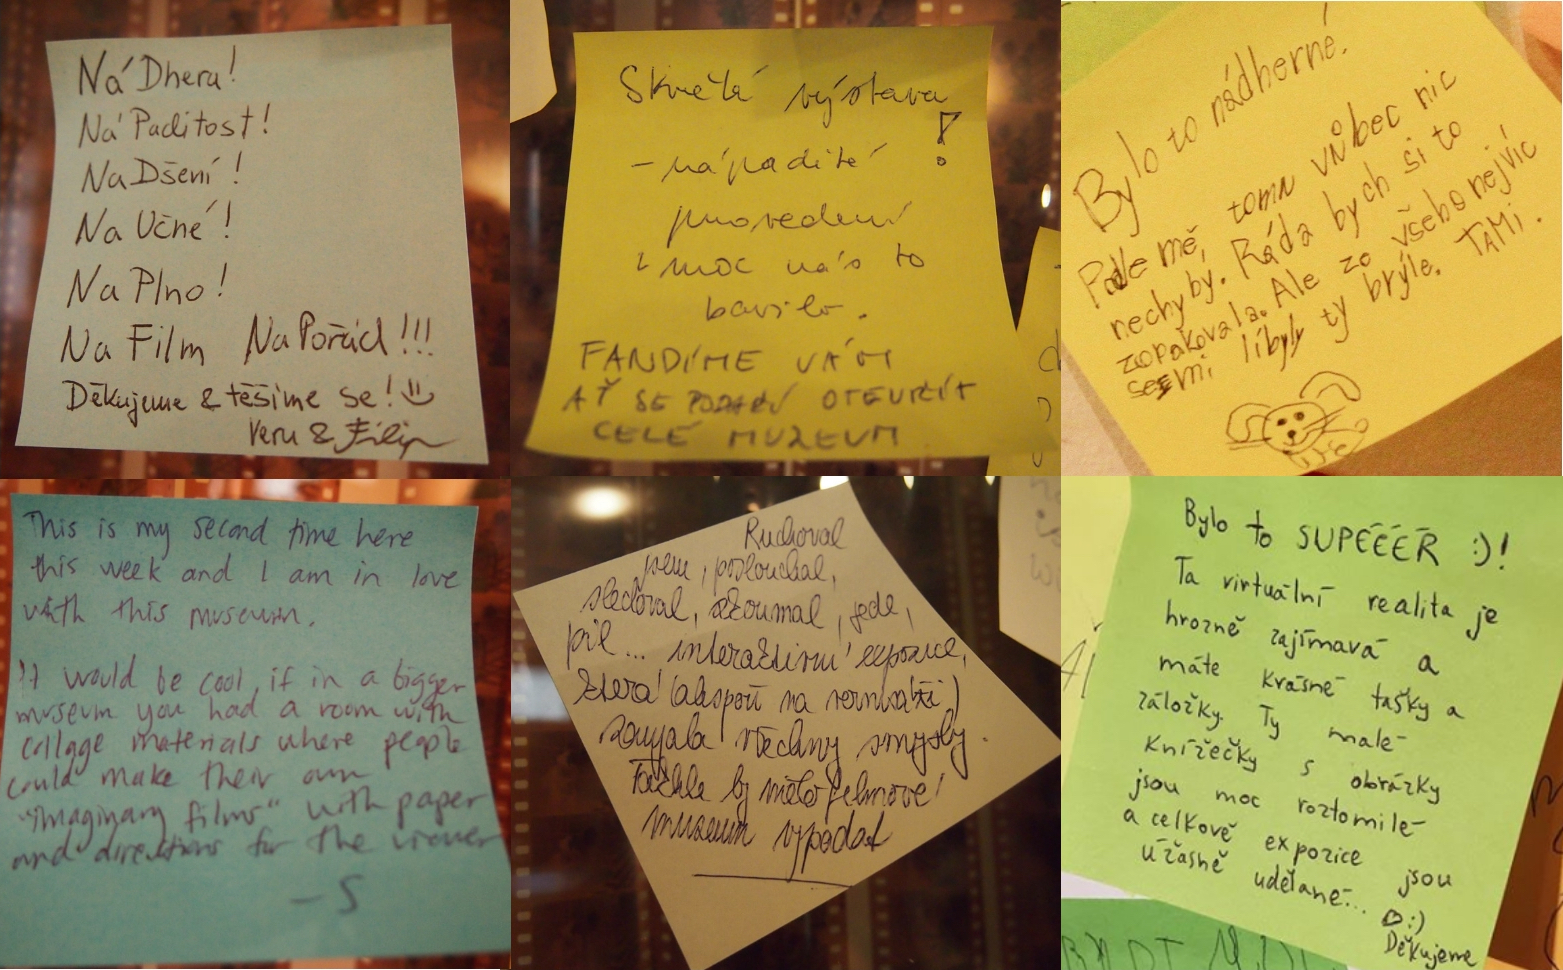 Ná Dhera!
Ná Paditost!
Na Dšení!
Na Učné!
Na Plno!
Na Film Na Pořád!!!
Děkujeme & těšíme se!
Veru & Filip
Skvělá výstava
!
- nápadité
provedení
i moc nás to
bavilo.
FANDÍME VÁM
AŤ SE PODAŘÍ OTEVŘÍT
CELÉ MUZEUM
Bylo to nádherné.
Podle mě, tomu vůbec nic
nechyby. Ráda bych si to
zopakovala. Ale ze všeho nejvíc
se mi líbyly ty brýle. TAMI.
This is my second time here
this week and I am in love
with this museum.
It would be cool, if in a bigger
museum you had a room with
collage materials where people
could make their own
"imaginary films" with paper
and directions for the viewer
- S
Ruchoval
jsem, poslouchal,
sledoval, zkoumal, jedl,
pil... interaktivní expozice,
která (alespoň na rozmístění)
zaujala všechny smysly.
Takhle by mělo filmové
muzeum vypadat
Bylo to SUPÉÉÉR :)!
Ta virtuální realita je
hrozně zajímavá a
máte krásné tašky a
záložky. Ty malé
knížečky s obrázky
jsou moc roztomilé
a celkově expozice jsou
úžasně udělané... :)
Děkujeme